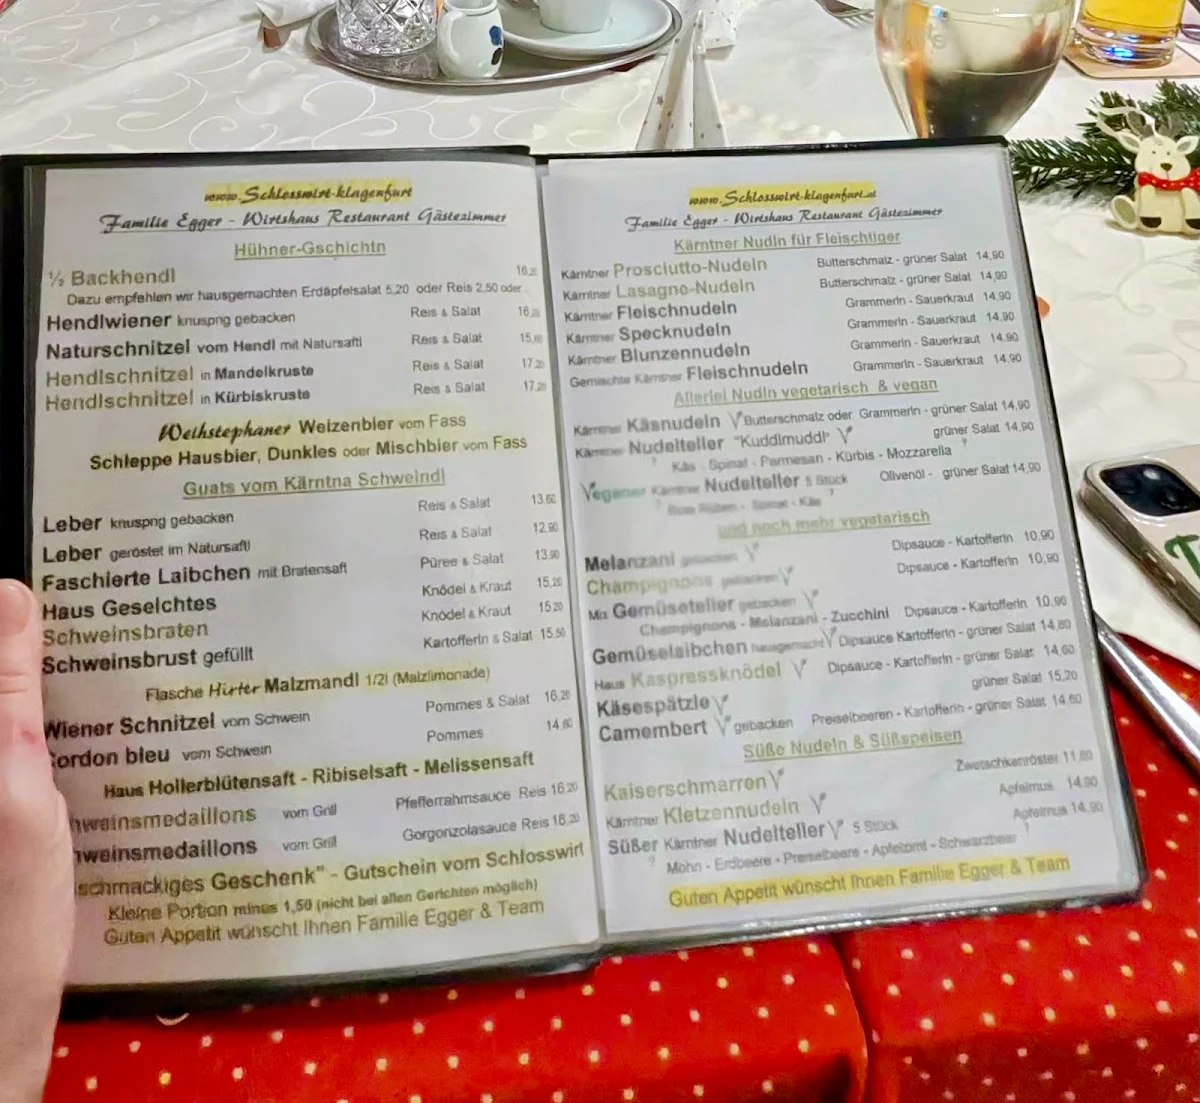 www.Schlosswirt-klagenfurt
Familie Egger - Wirtshaus Restaurant Gästezimmer
Hühner-Gschichtn
½ Backhendl 16,20
Dazu empfehlen wir hausgemachten Erdäpfelsalat 5,20 oder Reis 2,50 oder
Hendlwiener knuspng gebacken Reis & Salat 16,20
Naturschnitzel vom Hendl mit Natursaftl Reis & Salat 15,60
Hendlschnitzel in Mandelkruste Reis & Salat 17,20
Hendlschnitzel in Kürbiskruste Reis & Salat 17,20
Weihstephaner Weizenbier vom Fass
Schleppe Hausbier, Dunkles oder Mischbier vom Fass
Guats vom Kärntna Schweindl
Leber knuspng gebacken Reis & Salat 13,60
Leber geröstet im Natursaftl Reis & Salat 12,90
Faschierte Laibchen mit Bratensaft Püree & Salat 13,90
Haus Geselchtes Knödel & Kraut 15,20
Schweinsbraten Knödel & Kraut 15,20
Schweinsbrust gefüllt Kartofferln & Salat 15,50
Flasche Hirter Malzmandl 1/2l (Malzlimonade)
Wiener Schnitzel vom Schwein Pommes & Salat 16,20
ordon bleu vom Schwein Pommes 14,60
Haus Hollerblütensaft - Ribiselsaft - Melissensaft
hweinsmedaillons vom Grill Pfefferrahmsauce Reis 16,20
hweinsmedaillons vom Grill Gorgonzolasauce Reis 16,20
schmackiges Geschenk" - Gutschein vom Schlosswirt
Kleine Portion minus 1,50 (nicht bei allen Gerichten möglich)
Guten Appetit wünscht Ihnen Familie Egger & Team
www.Schlosswirt-klagenfurt.at
Familie Egger - Wirtshaus Restaurant Gästezimmer
Kärntner Nudln für Fleischtiger
Kärntner Prosciutto-Nudeln Butterschmalz - grüner Salat 14,90
Kärntner Lasagne-Nudeln Butterschmalz - grüner Salat 14,90
Kärntner Fleischnudeln Grammerln - Sauerkraut 14,90
Kärntner Specknudeln Grammerln - Sauerkraut 14,90
Kärntner Blunzennudeln Grammerln - Sauerkraut 14,90
Gemischte Kärntner Fleischnudeln Grammerln - Sauerkraut 14,90
Allerlei Nudln vegetarisch & vegan
Kärntner Käsnudeln V Butterschmalz oder Grammerln - grüner Salat 14,90
Kärntner Nudelteller "Kuddlmuddl" V grüner Salat 14,90
? Käs - Spinat - Parmesan - Kürbis - Mozzarella ?
Veganer Kärntner Nudelteller 5 Stück Olivenöl - grüner Salat 14,90
? Rote Rüben - Spinat - Käs ?
und noch mehr vegetarisch
Melanzani gebacken V Dipsauce - Kartofferln 10,90
Champignons gebacken V Dipsauce - Kartofferln 10,90
Mix Gemüseteller gebacken V
Champignons - Melanzani - Zucchini Dipsauce - Kartofferln 10,90
Gemüselaibchen hausgemacht V Dipsauce Kartofferln - grüner Salat 14,60
Haus Kaspressknödel V Dipsauce - Kartofferln - grüner Salat 14,60
Käsespätzle V grüner Salat 15,20
Camembert V gebacken Preiselbeeren - Kartofferln - grüner Salat 14,60
Süße Nudeln & Süßspeisen
Kaiserschmarren V Zwetschkenröster 11,80
Kärntner Kletzennudeln V Apfelmus 14,90
Süßer Kärntner Nudelteller V 5 Stück Apfelmus 14,90
? Mohn - Erdbeere - Preiselbeere - Apfelzimt - Schwarzbeer ?
Guten Appetit wünscht Ihnen Familie Egger & Team